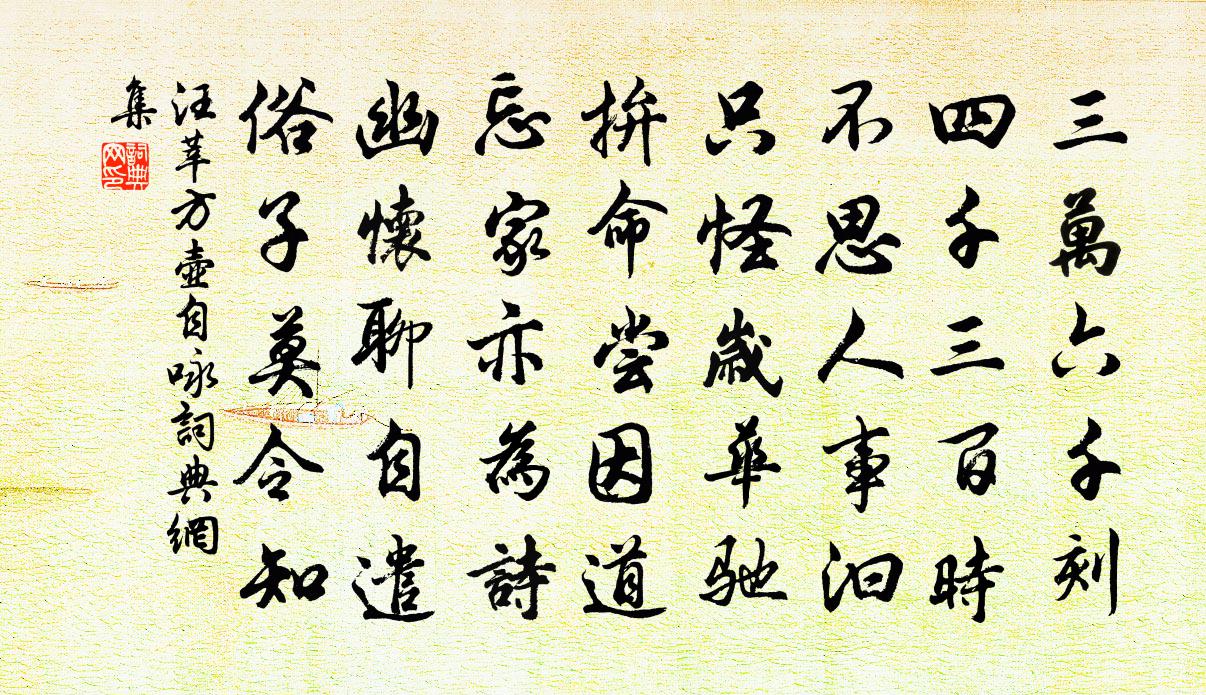 三萬六千刻
四千三百時
不思人事汩
只怪歲華馳
拚命嘗因道
忘家亦為詩
幽懷聊自遣
俗子莫令知
汪莘方壺自咏詞典網
集
詞典
网印